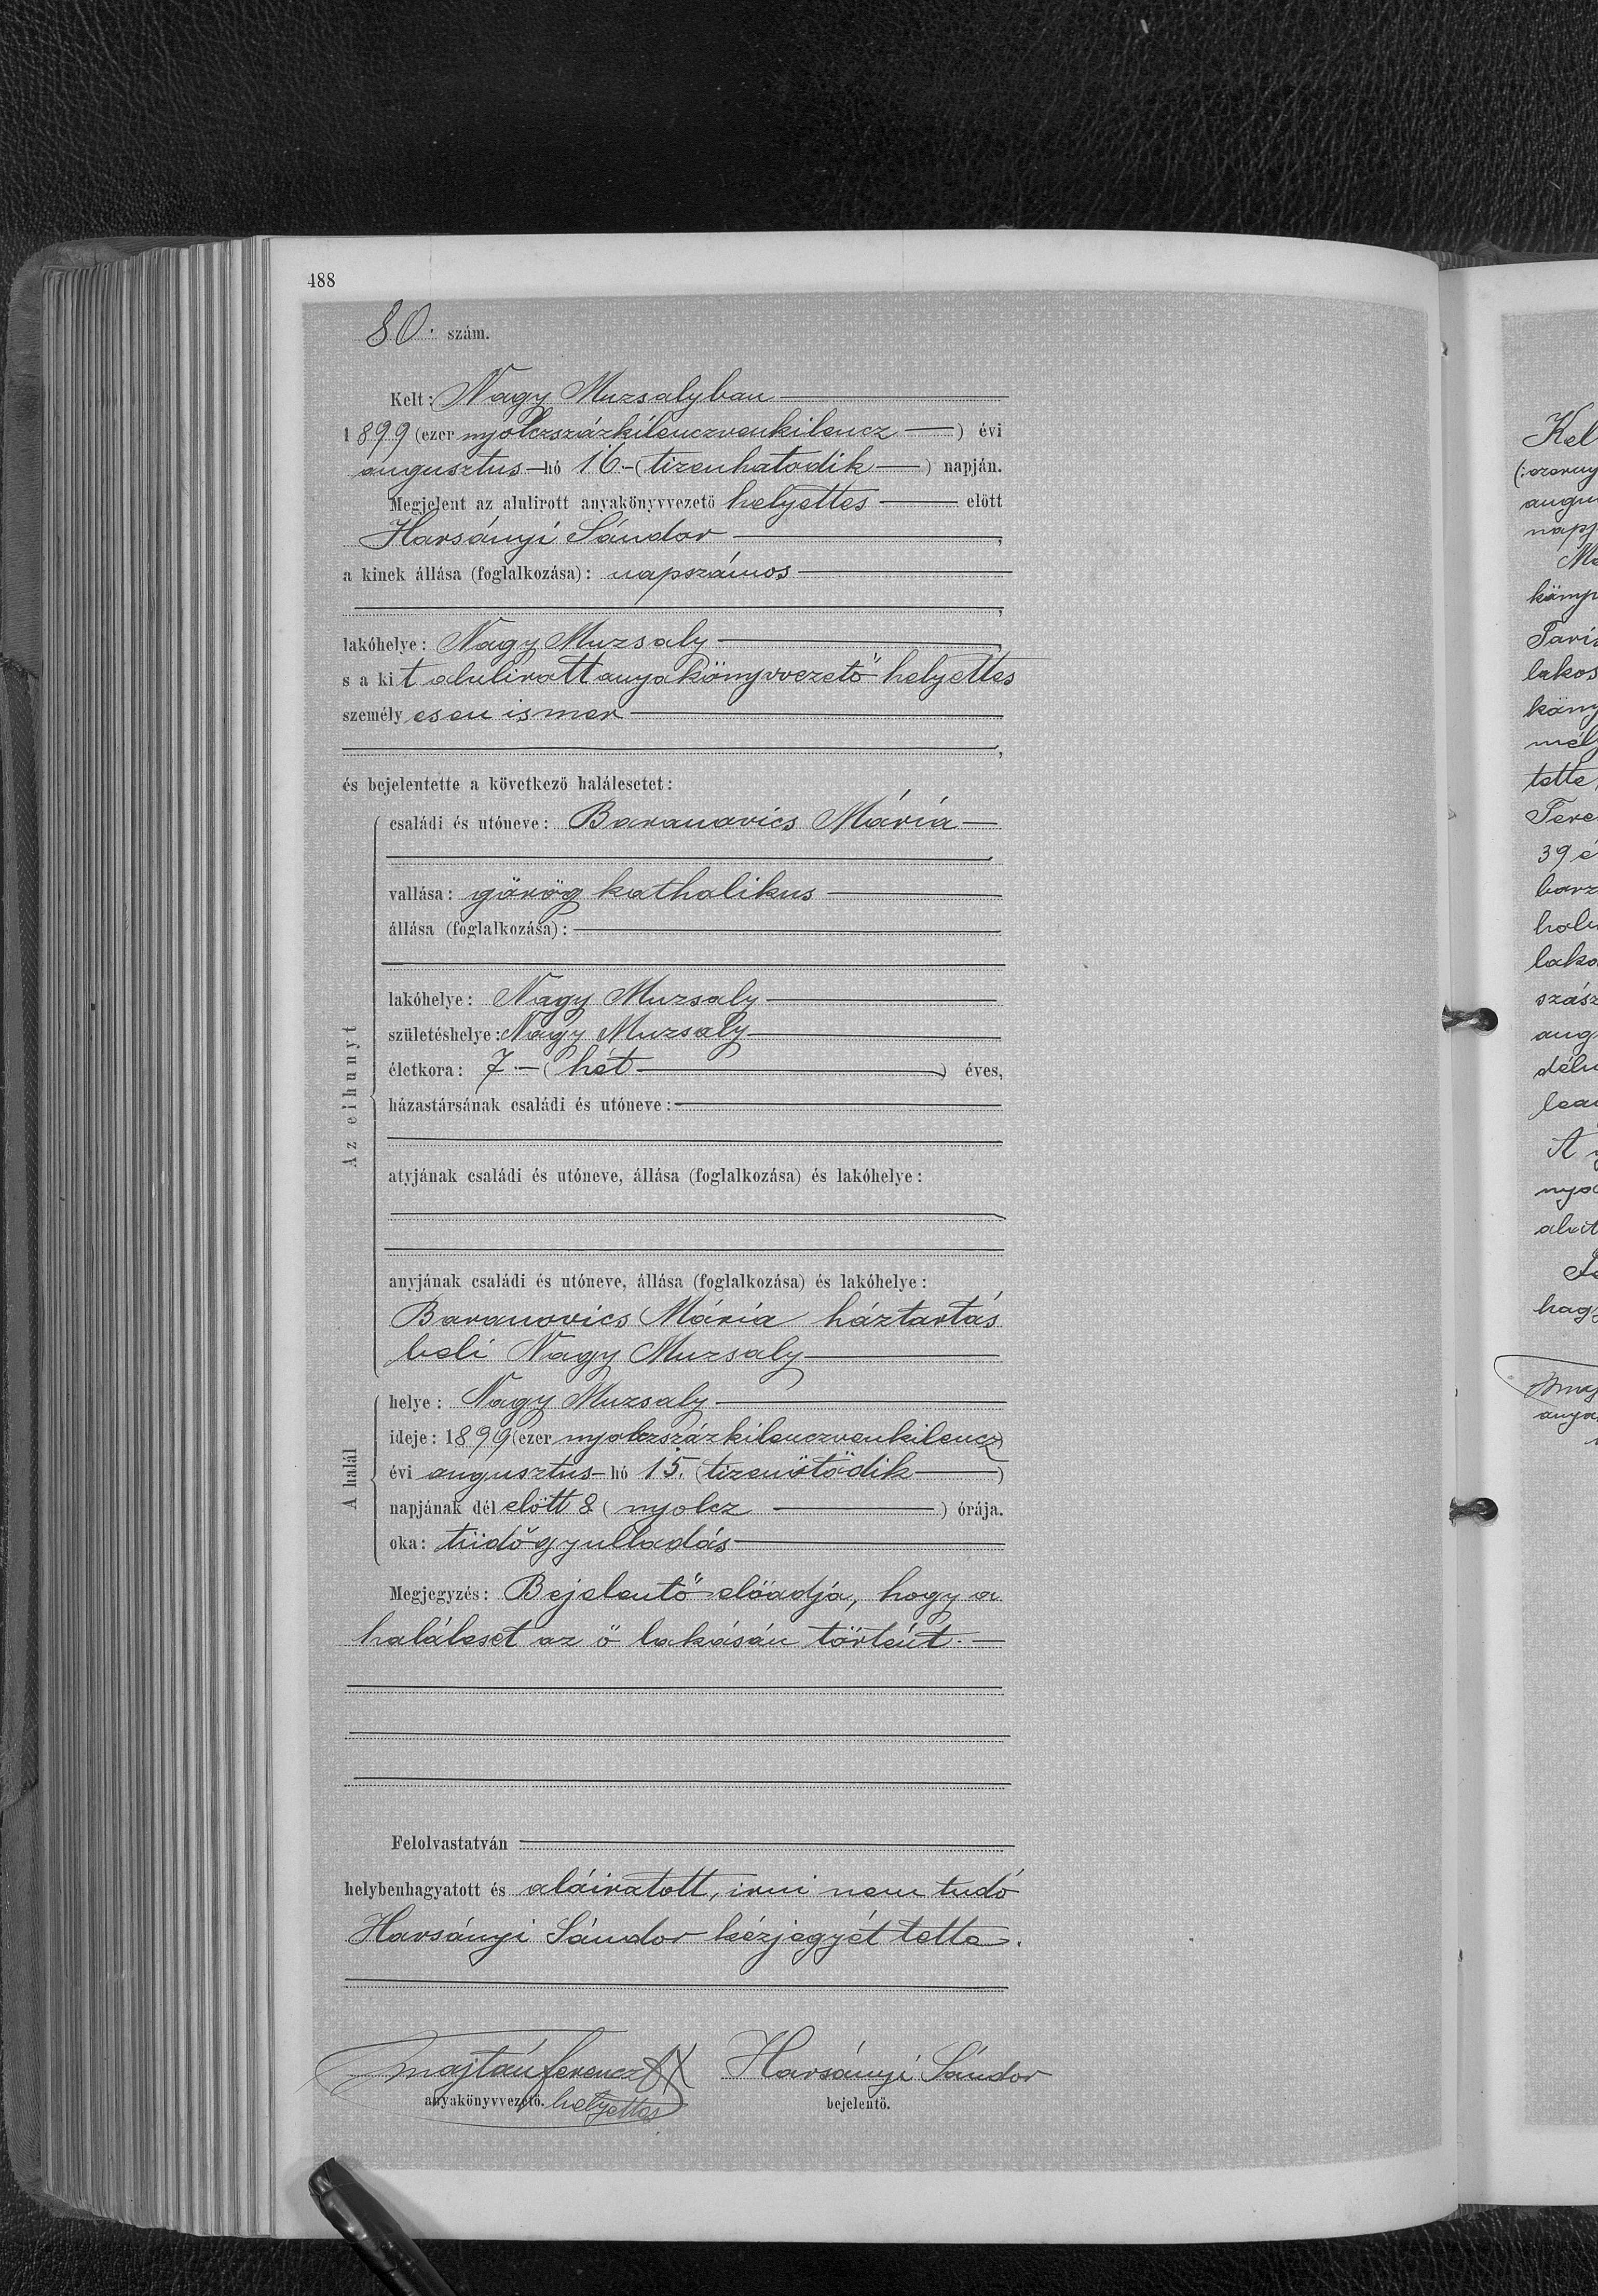 488
80. szám.
Kelt: Nagy Muzsalyban
1899 (ezer nyolczszázkilenczvenkilencz) évi
augusztus hó 16. (tizenhatodik) napján.
Megjelent az alulirott anyakönyvvezető helyettes előtt
Harsányi Sándor,
a kinek állása (foglalkozása): napszámos
,
lakóhelye: Nagy Muzsaly
s a kit alulirott anyakönyvvezető helyettes
személyesen ismer
,
és bejelentette a következő halálesetet:
Az elhunyt
családi és utóneve: Baranovics Mária
vallása: görög katholikus
állása (foglalkozása):
lakóhelye: Nagy Muzsaly
születéshelye: Nagy Muzsaly
életkora: 7. (hét) éves,
házastársának családi és utóneve:
atyjának családi és utóneve, állása (foglalkozása) és lakóhelye:
anyjának családi és utóneve, állása (foglalkozása) és lakóhelye:
Baranovics Mária háztartás
beli Nagy Muzsaly
A halál
helye: Nagy Muzsaly
ideje: 1899 (ezer nyolczszázkilenczvenkilencz)
évi augusztus hó 15. (tizenötödik)
napjának dél előtt 8 (nyolcz) órája.
oka: tüdőgyulladás
Megjegyzés: Bejelentő előadja, hogy a
haláleset az ő lakásán történt.
Felolvastatván
helybenhagyatott és aláiratott, irni nem tudó
Harsányi Sándor kézjegyét tette.
Majtán Ferencz
XX Harsányi Sándor
anyakönyvvezető. helyettes
bejelentő.
Kel
augu
napj
Ma
lakos
tette,
Tere
39 é
szász
aug
A
hagy
anya